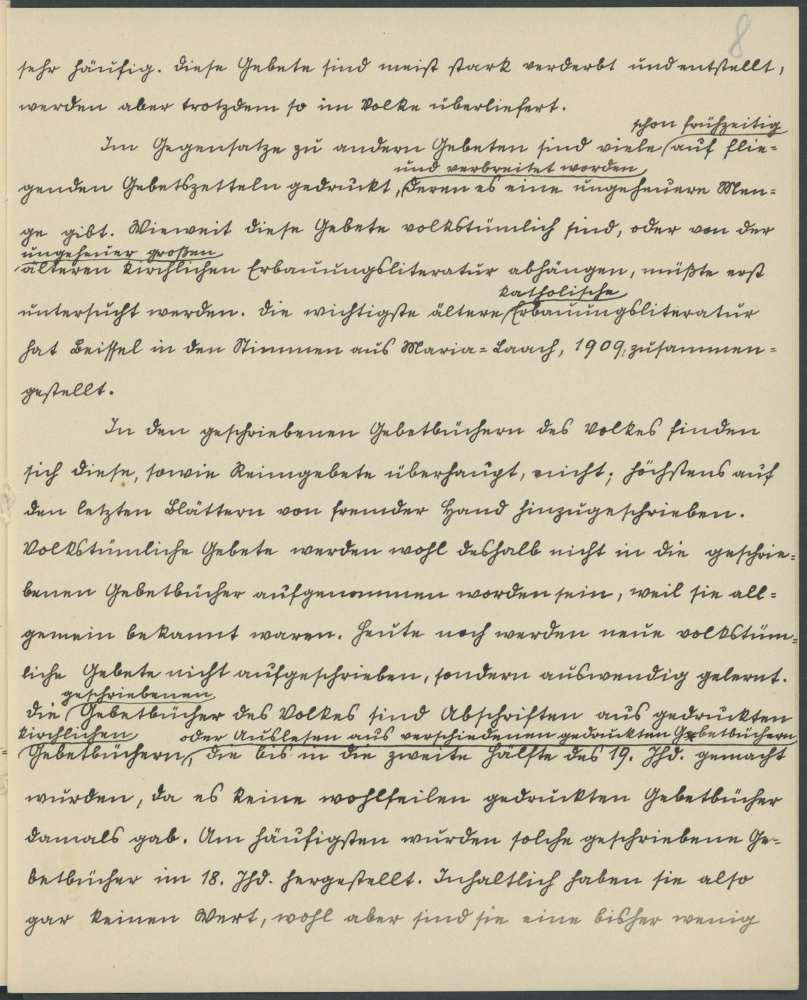 8
sehr häufig. Diese Gebete sind meist stark verderbt und entstellt,
werden aber trotzdem so im Volke überliefert.
schon frühzeitig
Im Gegensatze zu andern Gebeten sind viele auf flie=
und verbreitet worden,
genden Gebetszetteln gedruckt, deren es eine ungeheuere Men=
ge gibt. Wieweit diese Gebete volkstümlich sind, oder von der
ungeheuer großen
älteren kirchlichen Erbauungsliteratur abhängen, müßte erst
katholische
untersucht werden. Die wichtigste ältere Erbauungsliteratur
hat Beissel in den Stimmen aus Maria=Laach, 1909, zusammen=
gestellt.
In den geschriebenen Gebetbüchern des Volkes finden
sich diese, sowie Reimgebete überhaupt, nicht; höchstens auf
den letzten Blättern von fremder Hand hinzugeschrieben.
Volkstümliche Gebete werden wohl deshalb nicht in die geschrie=
benen Gebetbücher aufgenommen worden sein, weil sie all=
gemein bekannt waren. Heute noch werden neue volkstüm=
liche Gebete nicht aufgeschrieben, sondern auswendig gelernt.
geschriebenen
Die Gebetbücher des Volkes sind Abschriften aus gedruckten
kirchlichen oder Auslesen aus verschiedenen gedruckten Gebetbüchern
Gebetbüchern, die bis in die zweite Hälfte des 19. Jhd. gemacht
wurden, da es keine wohlfeilen gedruckten Gebetbücher
damals gab. Am häufigsten wurden solche geschriebene Ge=
betbücher im 18. Jhd. hergestellt. Inhaltlich haben sie also
gar keinen Wert, wohl aber sind sie eine bisher wenig